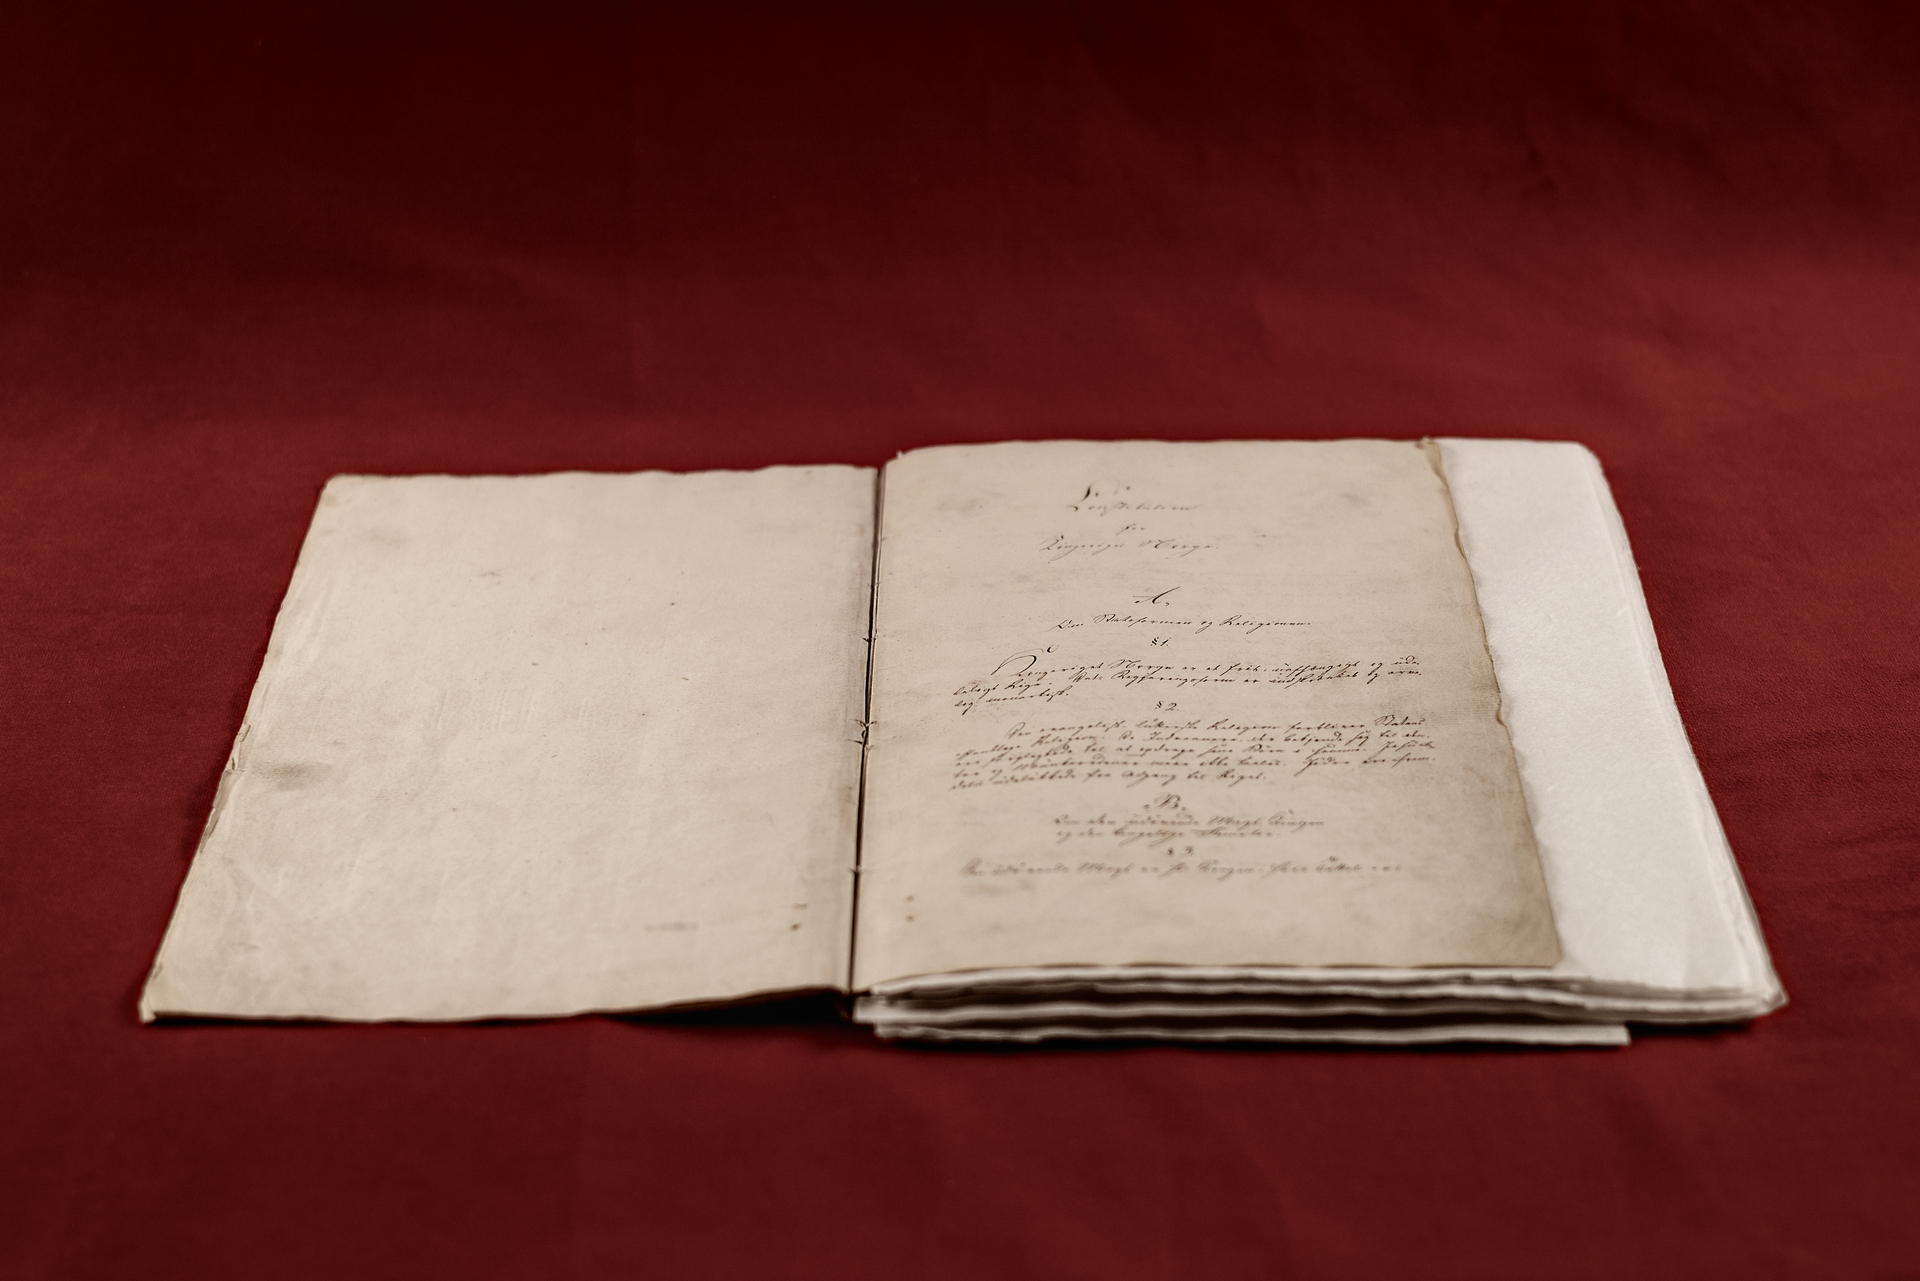 Constitution
for
Kongeriget Norge.
A,
Om Statsformen og Religionen.
§ 1.
Kongeriget Norge er et frit, uafhængigt og ude-
leligt Rige. Dets Regjeringsform er indskrænket og arve-
lig monarkisk.
§ 2.
Den evangelisk-lutterske Religion forbliver Statens
offentlige Religion. De Indvaanere, der bekjende sig til den,
ere forpligtede til at opdrage sine Børn i samme. Jesuit-
ter og Munkeordener maae ikke taales. Jøder ere frem-
deles udelukkede fra Adgang til Riget.
B,
Om den udøvende Magt, Kongen
og den kongelige Familie.
§ 3.
Den udøvende Magt er hos Kongen. Hans Tittel